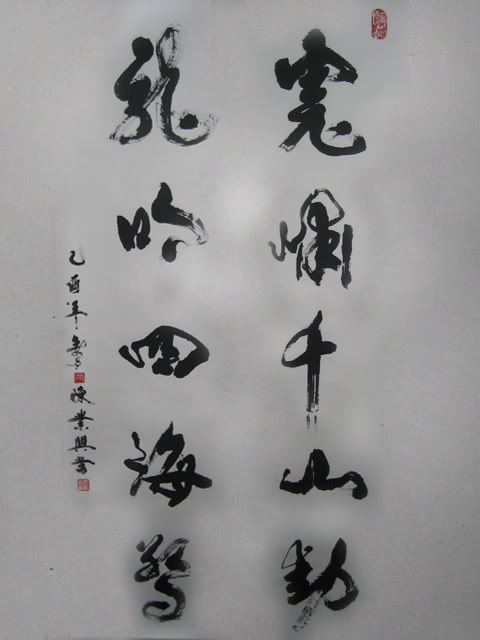 虎啸千山動
龍吟四海驚
乙酉年 陳業興書